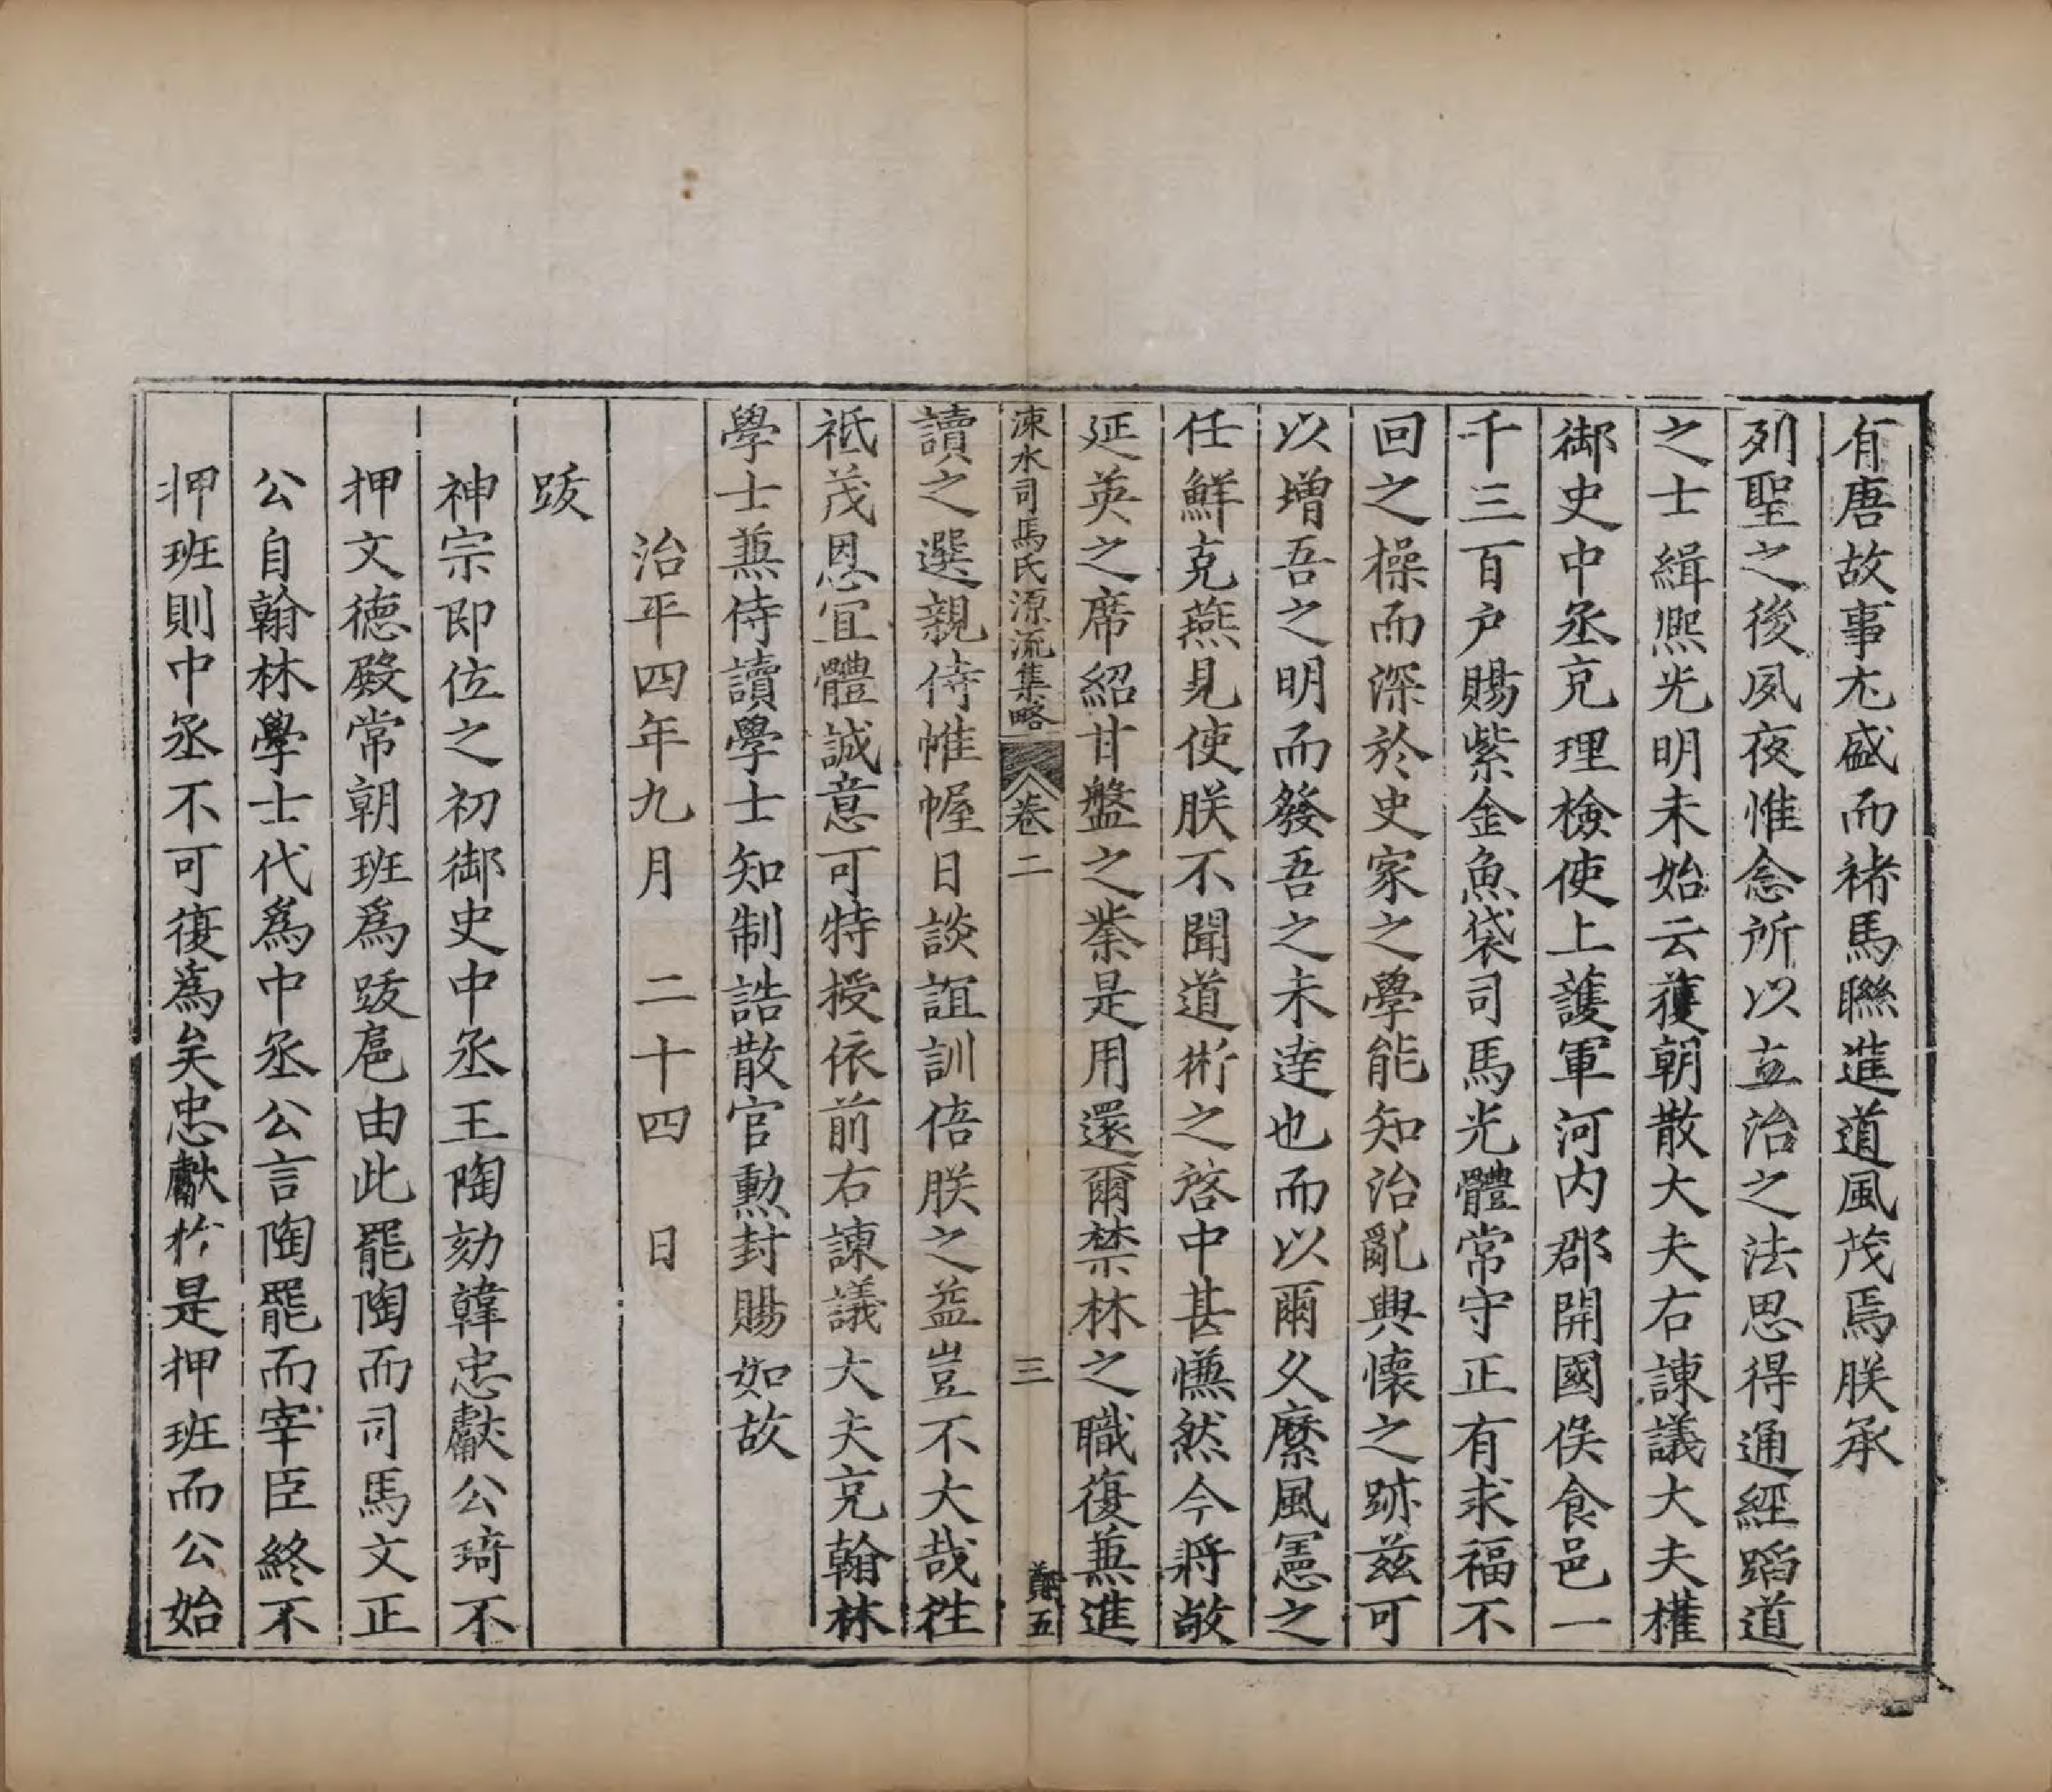 有唐故事尤盛而褚馬聯進道風茂焉朕承
列聖之後夙夜惟念所以立治之法思得通經蹈道
之士緝熙光明未始云獲朝散大夫右諫議大夫權
御史中丞充理檢使上護軍河内郡開國侯食邑一
千三百户賜紫金魚袋司馬光體常守正有求福不
回之操而深於史家之學能知治亂興懷之跡兹可
以增吾之明而發吾之未達也而以爾久縻風憲之
任鮮克燕見使朕不聞道術之啓中甚慊然今將敞
延英之席紹甘盤之業是用還爾禁林之職復兼進
涑水司馬氏源流集略 卷二 三 五
讀之選親侍帷幄日談誼訓倍朕之益豈不大哉往
祗茂恩宜體誠意可特授依前右諫議大夫充翰林
學士兼侍讀學士知制誥散官勲封賜如故
治平四年九月 二十四 日
跋
神宗即位之初御史中丞王陶劾韓忠獻公琦不
押文德殿常朝班爲跋扈由此罷陶而司馬文正
公自翰林學士代爲中丞公言陶罷而宰臣終不
押班則中丞不可復爲矣忠獻於是押班而公始